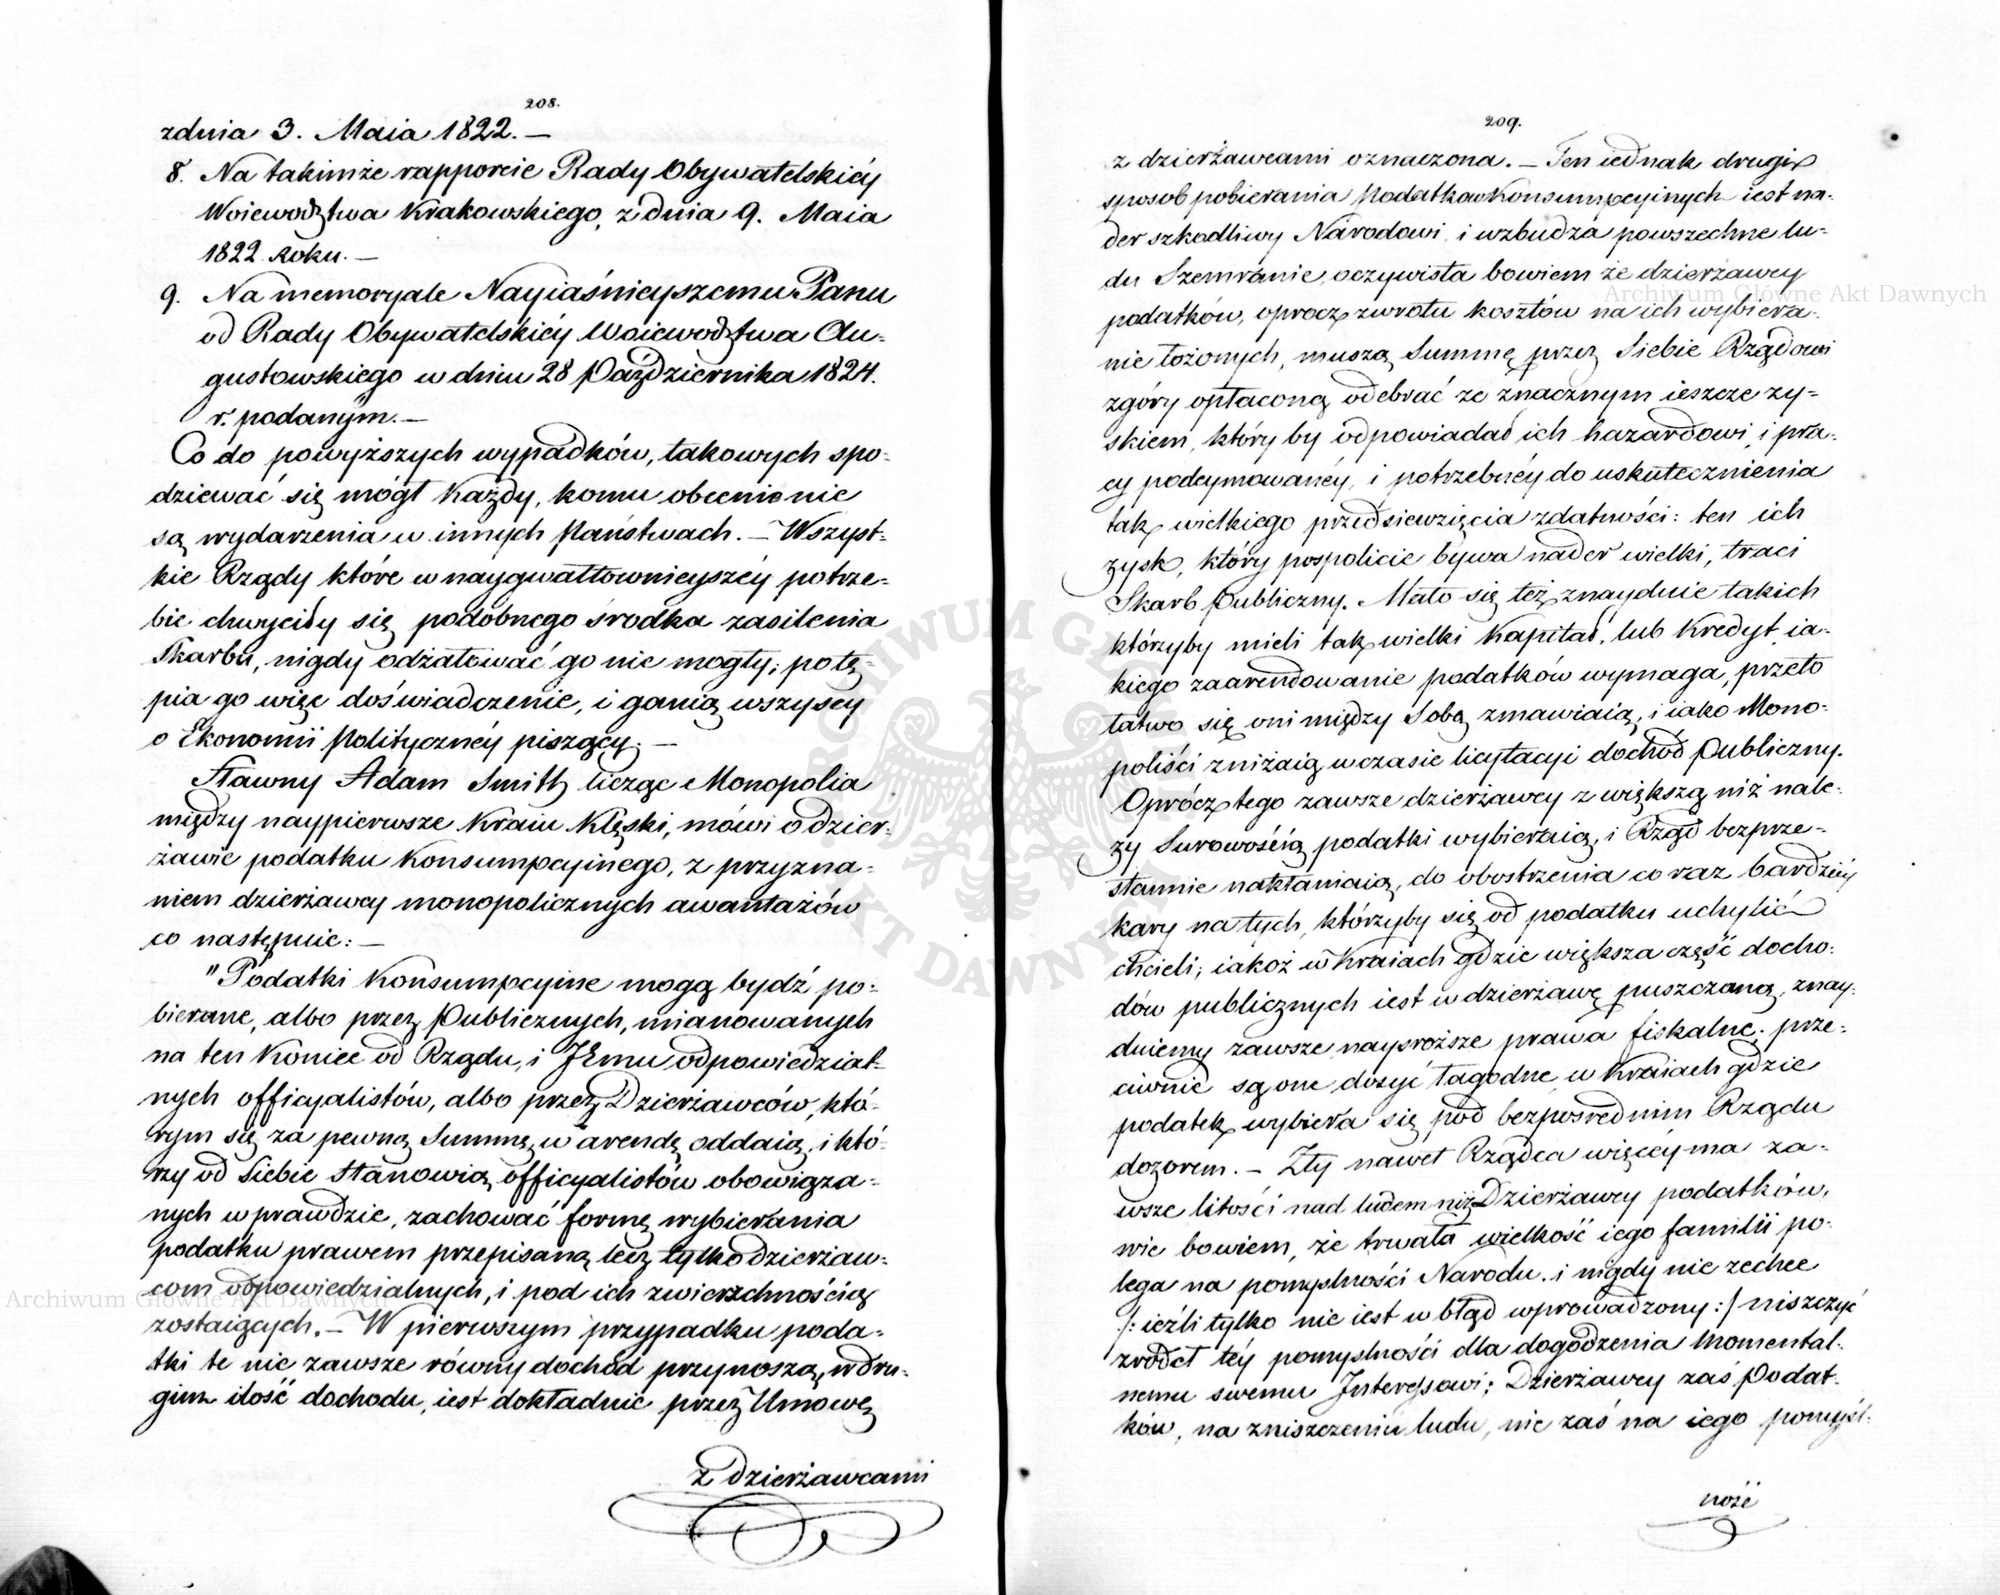 208.
zdnia 3. Maia 1822. —
8. Na takimże rapporcie Rady Obywatelskiéy
Woiewodztwa Krakowskiego, z dnia 9. Maia
1822 Roku. —
9. Na memoryale Nayiaśnieyszemu Panu
od Rady Obywatelskiéy Woiewodztwa Au-
gustowskiego w dniu 28 Października 1824.
r. podanym. —
Co do powyższych wypadków, takowych spo-
dziewać się mógł każdy, komu obecnie nie
są wydarzenia w innych Państwach. — Wszyst-
kie Rządy które w naygwałtownieyszéy potrze-
bie chwyciły się podobnego środka zasilenia
Skarbu, nigdy odżałować go nie mogły; potę-
pia go więc doświadczenie, i ganią wszyscy
o Ekonomii Politycznéy piszący. —
Sławny Adam Smith licząc Monopolia
między naypierwsze Kraiu Klęski, mówi o dzier-
żawie podatku Konsumpcyinego, z przyzna-
niem dzierżawcy monopolicznych awantażów
co następuie: —
"Podatki Konsumpcyine mogą bydź po-
bierane, albo przez Publicznych, mianowanych
na ten Koniec od Rządu, i Jemu odpowiedzial-
nych officyalistów, albo przez Dzierżawców, któ-
rym się za pewną Summę w arendę oddaią, i któ-
rzy od Siebie Stanowią officyalistów obowiąza-
nych wprawdzie, zachować formę wybierania
podatku prawem przepisaną lecz tylko dzierżaw-
com odpowiedzialnych, i pod ich zwierzchnością
zostaiących. — W pierwszym przypadku poda-
tki te nie zawsze równy dochód przynoszą, w dru-
gim ilość dochodu, iest dokładnie przez Umowę
z Dzierżawcami
209.
z dzierżawcami oznaczona. — Ten iednak drugi
sposob pobierania Podatkow Konsumpcyinych iest na-
der szkodliwy Narodowi, i wzbudza powszechne lu-
du Szemranie, oczywista bowiem że dzierżawcy
podatków, oprocz zwrotu kosztów na ich wybiera-
nie łożonych, muszą Summę przez Siebie Rządowi
zgóry opłaconą odebrać ze znacznym ieszcze zy-
skiem, który by odpowiadał ich hazardowi, i pra-
cy podeymowanéy, i potrzebnéy do uskutecznienia
tak wielkiego przedsiewzięcia zdatności: ten ich
zysk, który pospolicie bywa nader wielki, traci
Skarb Publiczny. Mało się też znayduie takich
którzyby mieli tak wielki Kapitał, lub Kredyt, ia-
kiego zaarendowanie podatków wymaga, przeto
łatwo się oni między Sobą zmawiaią, i iako Mono-
poliści zniżaią w czasie licytacyi dochód Publiczny.
Oprócz tego zawsze dzierżawcy z większą niż nale-
ży Surowością podatki wybieraią, i Rząd bezprze-
stannie nakłaniaią, do obostrzenia co raz bardziéy
kary na tych, którzyby się od podatku uchylić
chcieli; iakoż w Kraiach gdzie większa część docho-
dów publicznych iest w dzierżawę puszczoną, znay-
dniemy zawsze naysroższe prawa fiskalne; prze-
ciwnie są one dosyć łagodne w Kraiach gdzie
podatek wybiera się pod bezpośrednim Rządu
dozorem. — Zły nawet Rządca więcéy ma za-
wsze litości nad ludem niż Dzierżawcy podatków,
wie bowiem, że trwała wielkość iego familii po-
lega na pomyslności Narodu, i nigdy nie zechce
/: ieźli tylko nie iest w błąd wprowadzony :/ niszczyć
zrodeł téy pomyslności dla dogodzenia Momental-
nemu swemu Interessowi; Dzierżawcy zaś Podat-
ków, na zniszczeniu ludu, nie zaś na iego pomyśl-
ności
Archiwum Główne Akt Dawnych
Archiwum Główne Akt Dawnych
ARCHIWUM GŁÓWNE AKT DAWNYCH